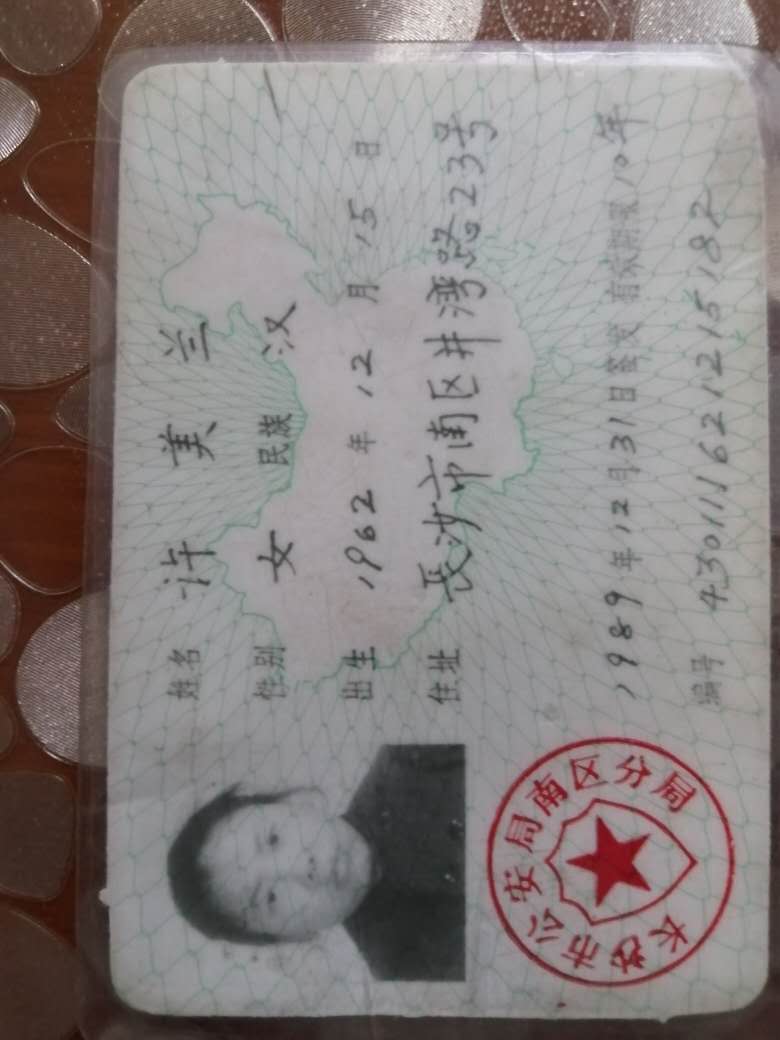 姓名 许美兰
性别 女 民族 汉
出生 1962年12月15日
住址 长沙市南区井湾路23号
1989年12月31日签发 有效期限10年
编号 430111621215182
长沙市公安局南区分局